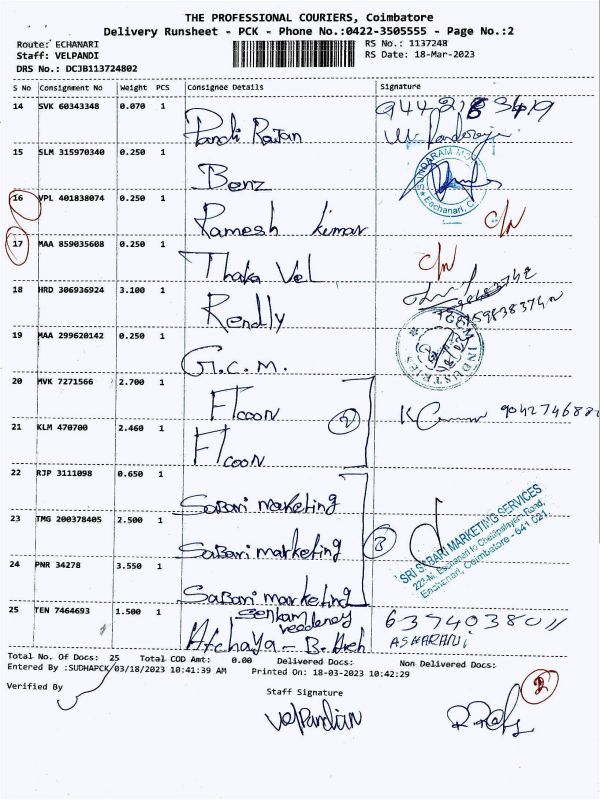 THE PROFESSIONAL COURIERS, Coimbatore
Delivery Runsheet - PCK - Phone No.:0422-3505555 - Page No.:2
Route: ECHANARI RS No.: 1137248
Staff: VELPANDI RS Date: 18-Mar-2023
DRS No.: DCJB113724802
S No Consignment No Weight PCS Consignee Details Signature
14 SVK 60343348 0.070 1 Pandi Rajan
15 SLM 315970340 0.250 1 Benz
16 VPL 401838074 0.250 1 Ramesh kumar C/N
17 MAA 859035608 0.250 1 Thaka Vel C/N
18 HRD 306936924 3.100 1 Rendly
19 MAA 299620142 0.250 1 G.C.M. INDUSTRIES
20 MVK 7271566 2.700 1 FTcoon
21 KLM 470700 2.460 1 FTcoon
22 RJP 3111098 0.650 1 Sabari marketing
23 TMG 200378405 2.500 1 Sabari marketing 3 SRI SABARI MARKETING SERVICES
24 PNR 34278 3.550 1 Sabari marketing Eachanari, Coimbatore - 641 021.
25 TEN 7464693 1.500 1 Atchaya - 6374038011
ASHARANI
Total No. Of Docs: 25 Total COD Amt: 0.00 Delivered Docs: Non Delivered Docs:
Entered By :SUDHAPCK/03/18/2023 10:41:39 AM Printed On: 18-03-2023 10:42:29
Verified By Staff Signature 2
Velpandian